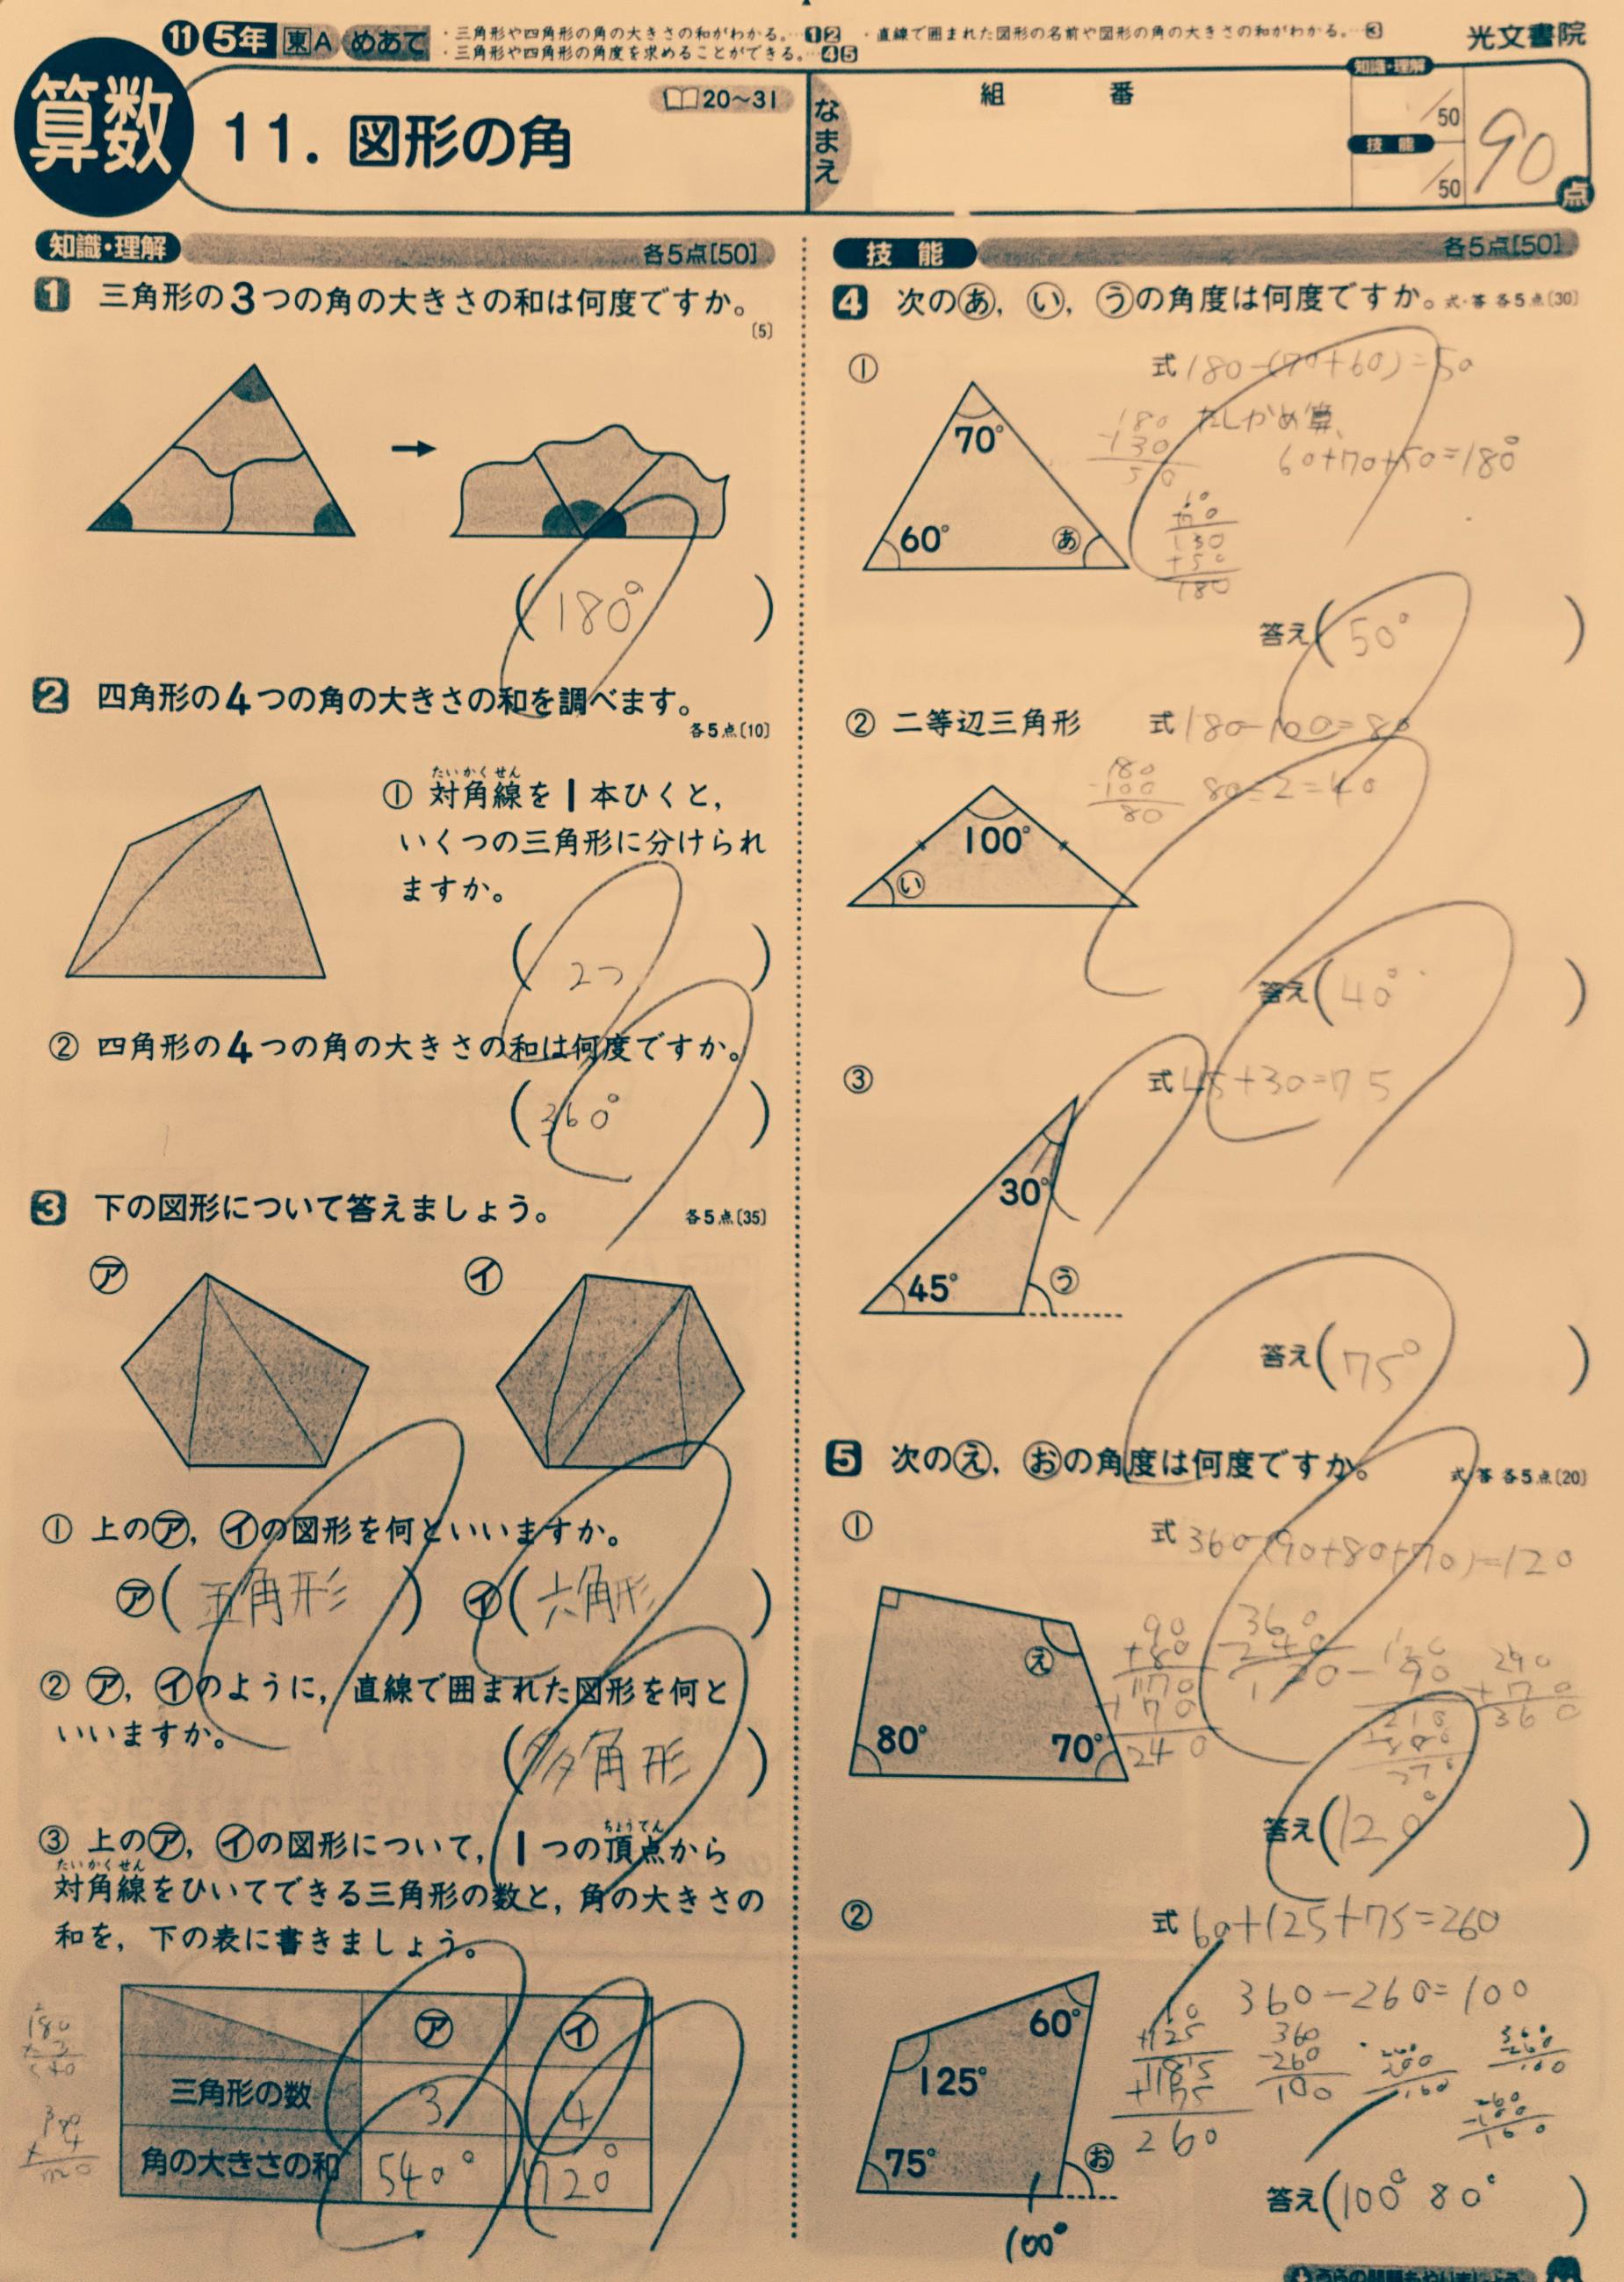 ⑪ 5年 東A めあて ・三角形や四角形の角の大きさの和がわかる。…1 2 ・直線で囲まれた図形の名前や図形の角の大きさの和がわかる。…3
・三角形や四角形の角度を求めることができる。…4 5
光文書院
算数
11. 図形の角
20〜31
なまえ
組 番
知識・理解
/50
技能
/50
90
点
知識・理解 各5点[50]
1 三角形の3つの角の大きさの和は何度ですか。
(5)
( 180° )
2 四角形の4つの角の大きさの和を調べます。
各5点(10)
① 対角線を1本ひくと,
たいかくせん
いくつの三角形に分けられ
ますか。
( 2つ )
② 四角形の4つの角の大きさの和は何度ですか。
( 360° )
3 下の図形について答えましょう。
各5点(35)
㋐ ㋑
① 上の㋐, ㋑の図形を何といいますか。
㋐( 五角形 ) ㋑( 六角形 )
② ㋐, ㋑のように, 直線で囲まれた図形を何と
いいますか。
( 多角形 )
③ 上の㋐, ㋑の図形について, 1つの頂点から
ちょうてん
たいかくせん
対角線をひいてできる三角形の数と, 角の大きさの
和を, 下の表に書きましょう。
㋐ ㋑
三角形の数 3 4
角の大きさの和 540° 720°
技能 各5点[50]
4 次のあ, い, うの角度は何度ですか。式・答 各5点(30)
①
式 180-(70+60)=50
たしかめ算
60+70+50=180°
180
-130
50
60
+70
130
+50
180
70°
60°
あ
答え( 50° )
② 二等辺三角形
式 180-100=80
80÷2=40
180
-100
80
100°
い
答え( 40° )
③
式 45+30=75
30°
45°
う
答え( 75° )
5 次のえ, おの角度は何度ですか。
式・答 各5点(20)
①
式 360-(90+80+70)=120
え
80°
70°
90
+80
170
+70
240
360
-240
120
答え( 120° )
②
式 60+125+75=260
360-260=100
60
+125
185
+75
260
360
-260
100
60°
125°
75°
お
100°
答え( 100° 80° )